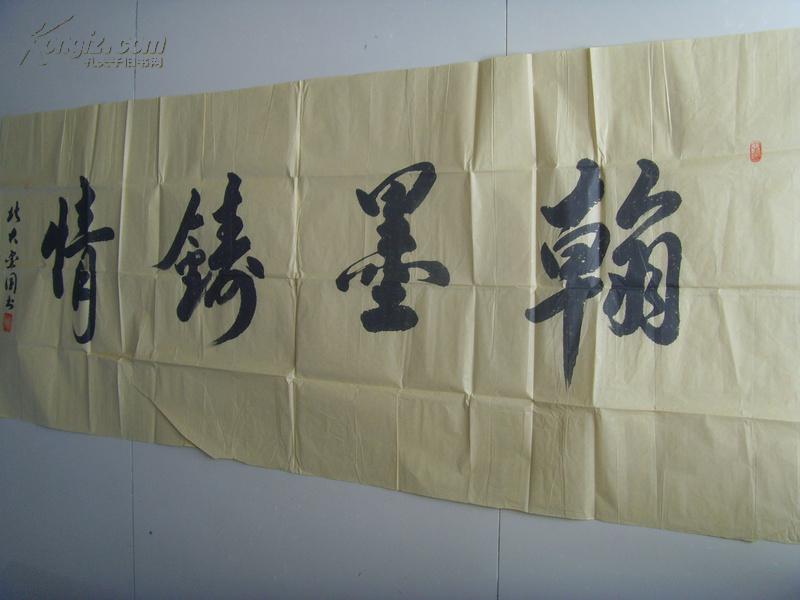 Kongfz.com
孔夫子旧书网
翰墨鑄情
北大雲園書